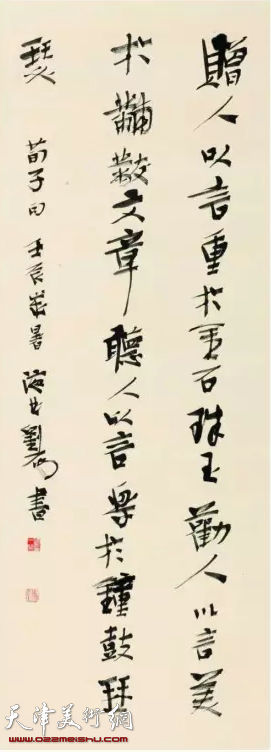 贈人以言重於金石珠玉勸人以言美
於黼黻文章聽人以言樂於鐘鼓琴
瑟
荀子句 壬辰歲暑 劉 書
天津美術網
www.022meishu.com